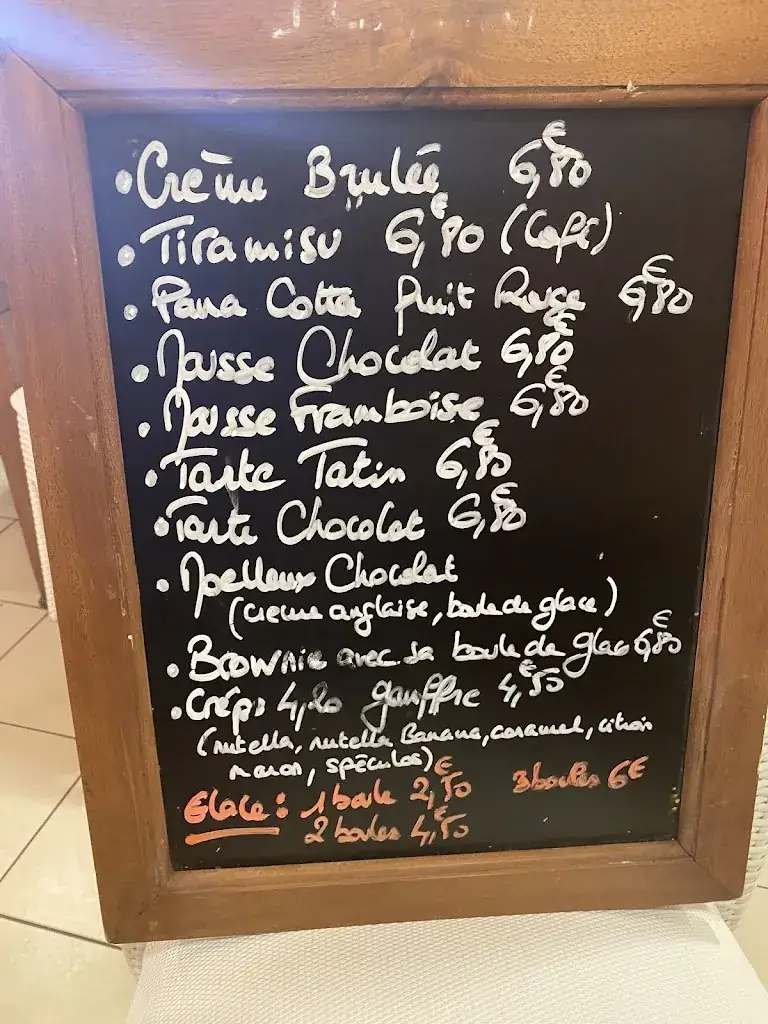 • Crème Brulée 6,80€
• Tiramisu 6,80€ (Café)
• Pana Cotta fruit Rouge 6,80€
• Mousse Chocolat 6,80€
• Mousse Framboise 6,80€
• Tarte Tatin 6,80€
• Tarte Chocolat 6,80€
• Moelleux Chocolat
(crème anglaise, boule de glace)
• Brownie avec sa boule de glace 6,80€
• Crêpe gauffre 4,50€
(nutella, nutella Banane, caramel, citron
maron, spéculos)
Glace: 1 boule 2,50€ 3 boules 6€
2 boules 4,50€